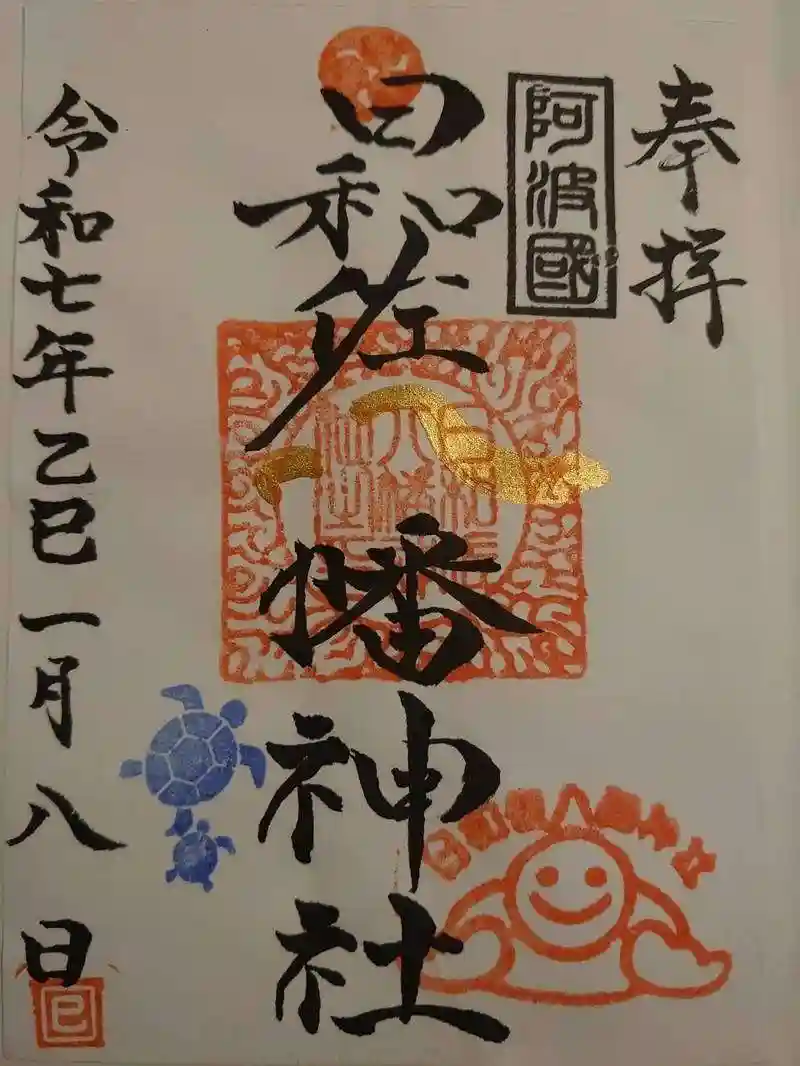 奉拝
阿波國
日和佐八幡神社
日和佐八幡神社
日和佐八幡神社
令和七年乙巳一月八日
巳